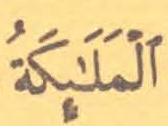 اَلْمَلَٰئِكَةُ